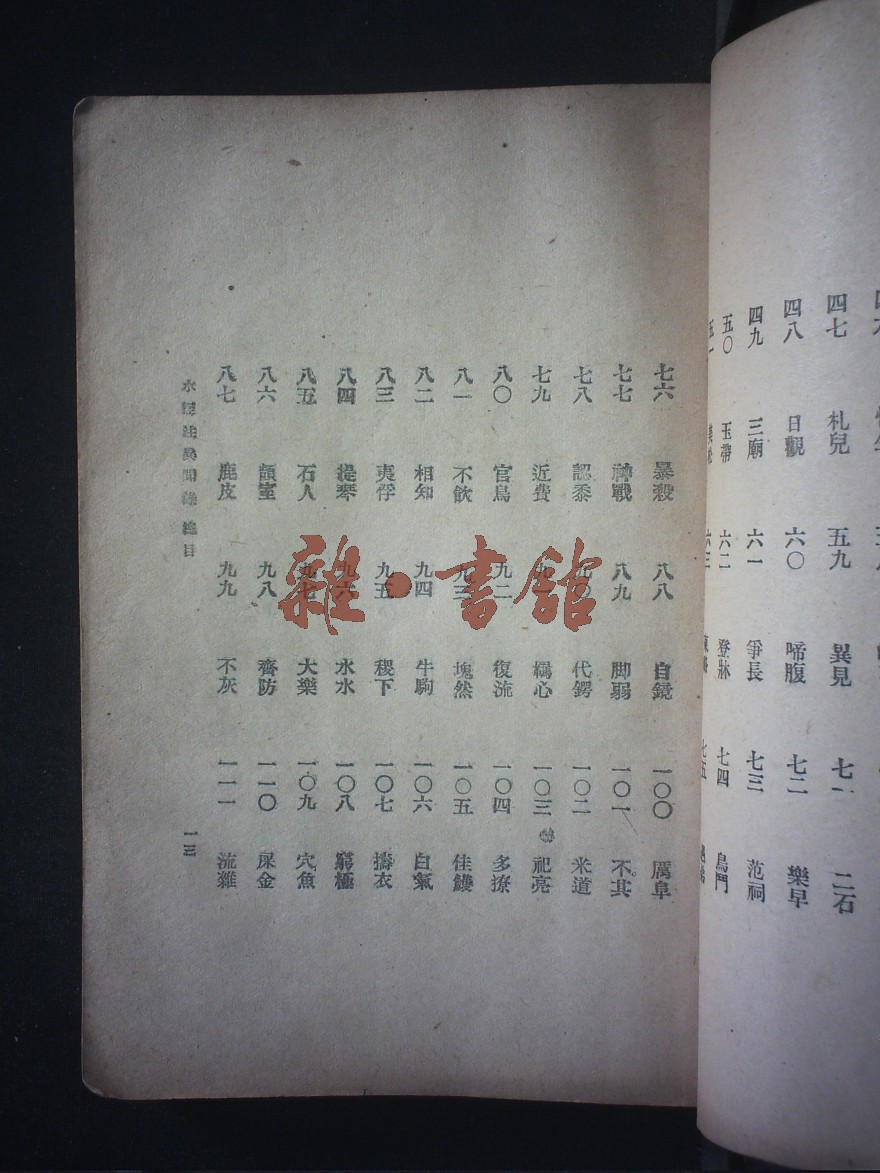 四七 札兒 五九 異見 七一 二石
四八 日觀 六〇 啼腹 七二 樂早
四九 三廟 六一 爭長 七三 范祠
五〇 玉帶 六二 登牀 七四 鳥鬥
五一 六三 七五
七六 暴殺 八八 自鏡 一〇〇 厲阜
七七 神戰 八九 脚弱 一〇一 不其
七八 認黍 九〇 代鍔 一〇二 米道
七九 近費 九一 羈心 一〇三 祀亮
八〇 官鳥 九二 復流 一〇四 多撩
八一 不飲 九三 塊然 一〇五 佳鑊
八二 相知 九四 牛駒 一〇六 白氣
八三 夷俘 九五 稷下 一〇七 擣衣
八四 提琴 九六 水水 一〇八 窮極
八五 石人 九七 大樂 一〇九 穴魚
八六 額室 九八 齊防 一一〇 屎金
八七 鹿皮 九九 不灰 一一一 流雜
水經注異聞錄 總目 一三
雜·書館